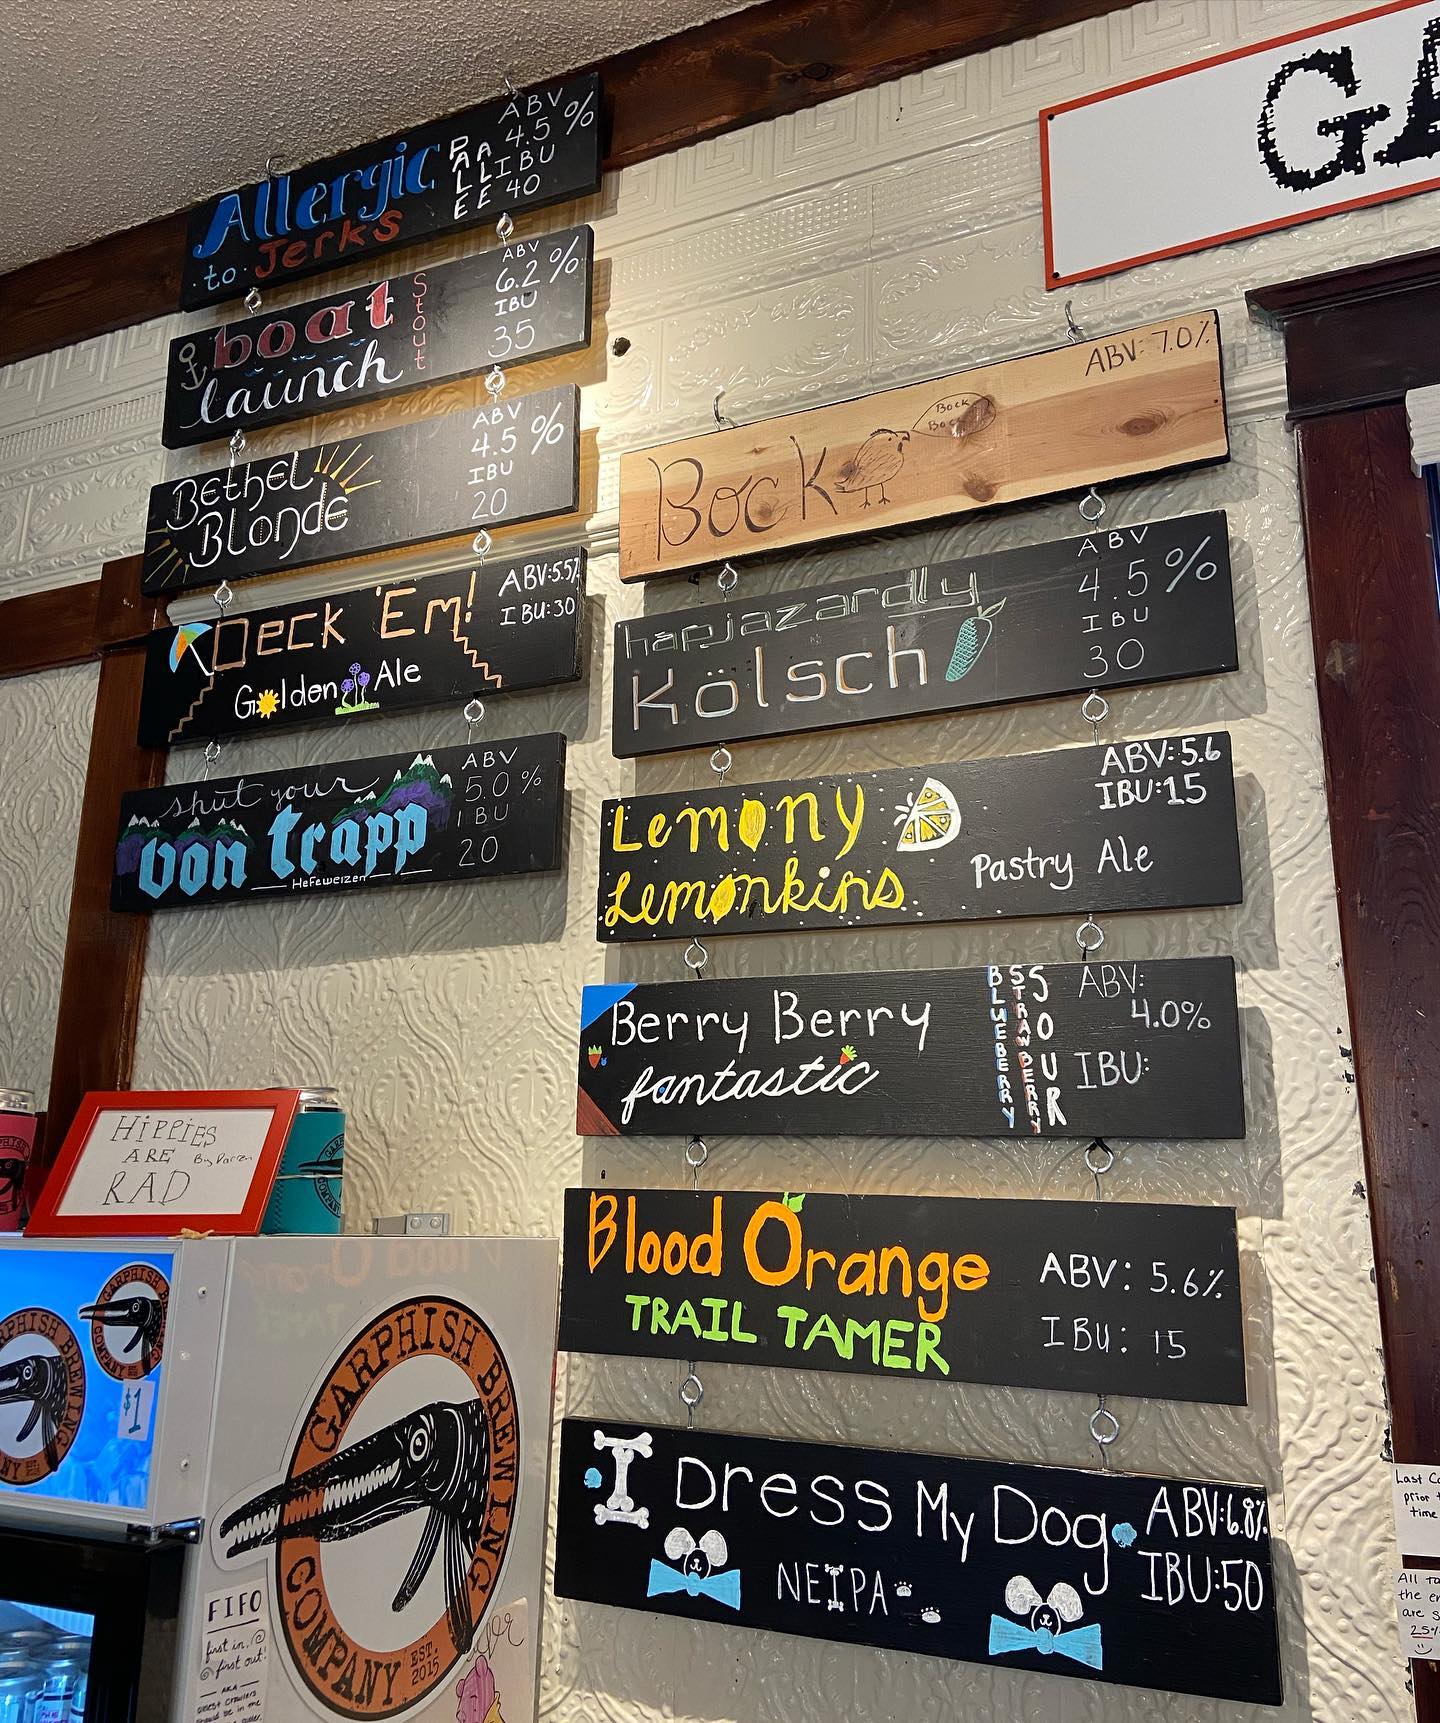 Allergic
to Jerks
PALE
ALE
ABV
4.5%
IBU
40
boat
launch
Stout
ABV
6.2%
IBU
35
Bethel
Blonde
ABV
4.5%
IBU
20
Deck 'Em!
Golden Ale
ABV:5.5%
IBU:30
shut your
von trapp
Hefeweizen
ABV
5.0%
IBU
20
GA
Bock
Bock
Bock
ABV: 7.0%
hapjazardly
Kölsch
ABV
4.5%
IBU
30
Lemony
Lemonkins
Pastry Ale
ABV:5.6
IBU:15
Berry Berry
fantastic
BLUEBERRY
STRAWBERRY
SOUR
ABV:
4.0%
IBU:
Blood Orange
TRAIL TAMER
ABV: 5.6%
IBU: 15
I Dress My Dog
NEIPA
ABV:6.8%
IBU:50
HIPPIES
ARE
RAD
By Darren
GARPHISH BREWING
COMPANY
EST.
2015
GARPHISH BREWING
COMPANY
$1
FIFO
first in,
first out!
AKA
oldest crowlers
should be in the
Last Ca
prior t
time
All ta
the en
are s
25%